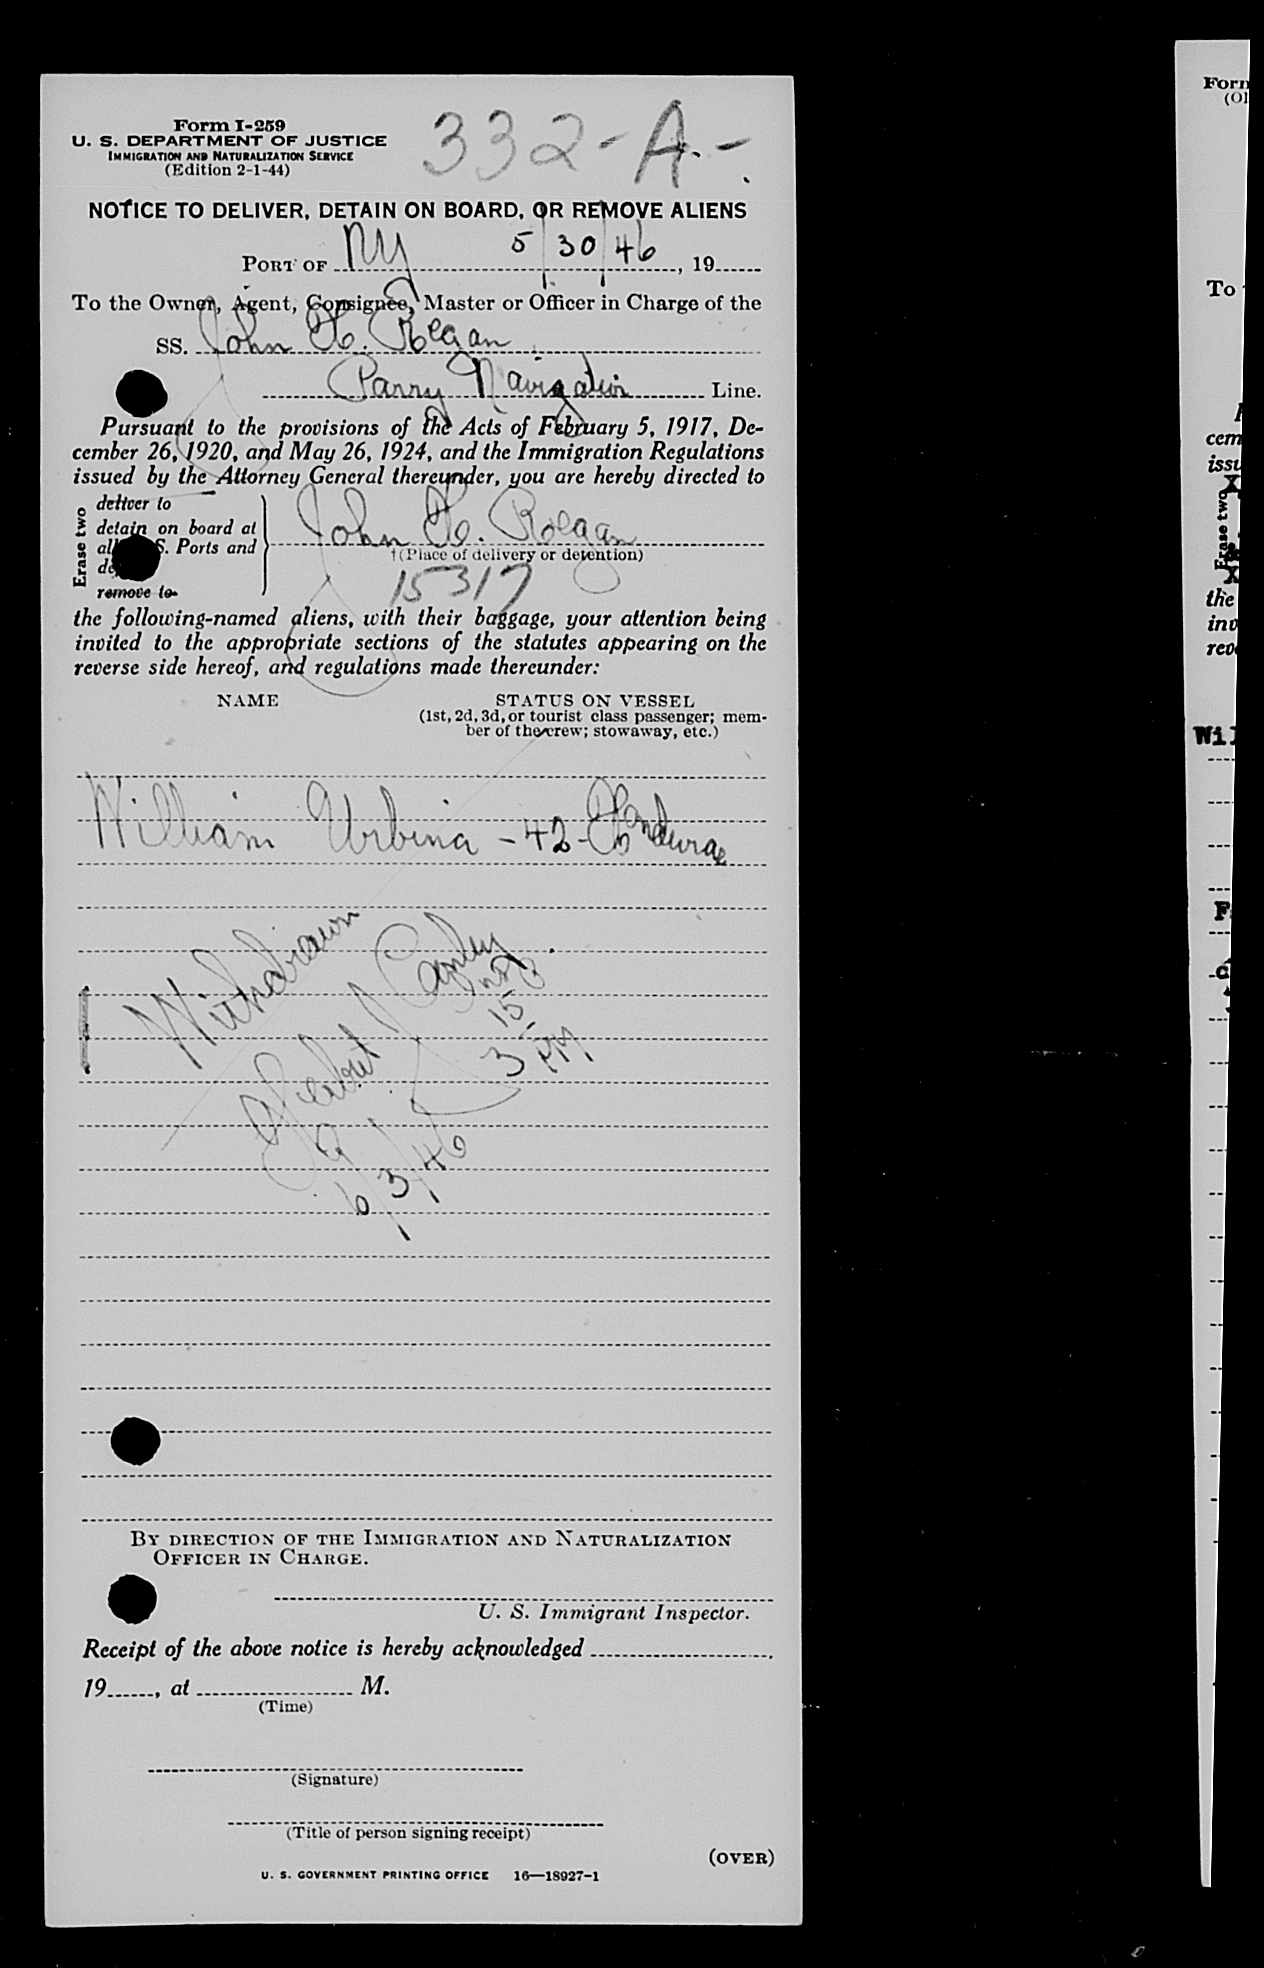 Form I-259
U. S. DEPARTMENT OF JUSTICE
IMMIGRATION AND NATURALIZATION SERVICE
(Edition 2-1-44)
332-A.-.
NOTICE TO DELIVER, DETAIN ON BOARD, OR REMOVE ALIENS
PORT OF NY 5/30/46, 19
To the Owner, Agent, Consignee, Master or Officer in Charge of the
SS. John H. Reagan
Parry Navigation Line.
Pursuant to the provisions of the Acts of February 5, 1917, De-
cember 26, 1920, and May 26, 1924, and the Immigration Regulations
issued by the Attorney General thereunder, you are hereby directed to
Erase two
deliver to
detain on board at
S. Ports and
remove to
John H. Reagan
†(Place of delivery or detention)
15317
the following-named aliens, with their baggage, your attention being
invited to the appropriate sections of the statutes appearing on the
reverse side hereof, and regulations made thereunder:
NAME STATUS ON VESSEL
(1st, 2d, 3d, or tourist class passenger; mem-
ber of the crew; stowaway, etc.)
William Urbina - 42 - Honduras
Withdrawn
3 PM
6/3/46
BY DIRECTION OF THE IMMIGRATION AND NATURALIZATION
OFFICER IN CHARGE.
U. S. Immigrant Inspector.
Receipt of the above notice is hereby acknowledged
19, at M.
(Time)
(Signature)
(Title of person signing receipt)
(OVER)
U. S. GOVERNMENT PRINTING OFFICE 16—18927-1
To
cem
issu
Erase two
the
inv
Wil